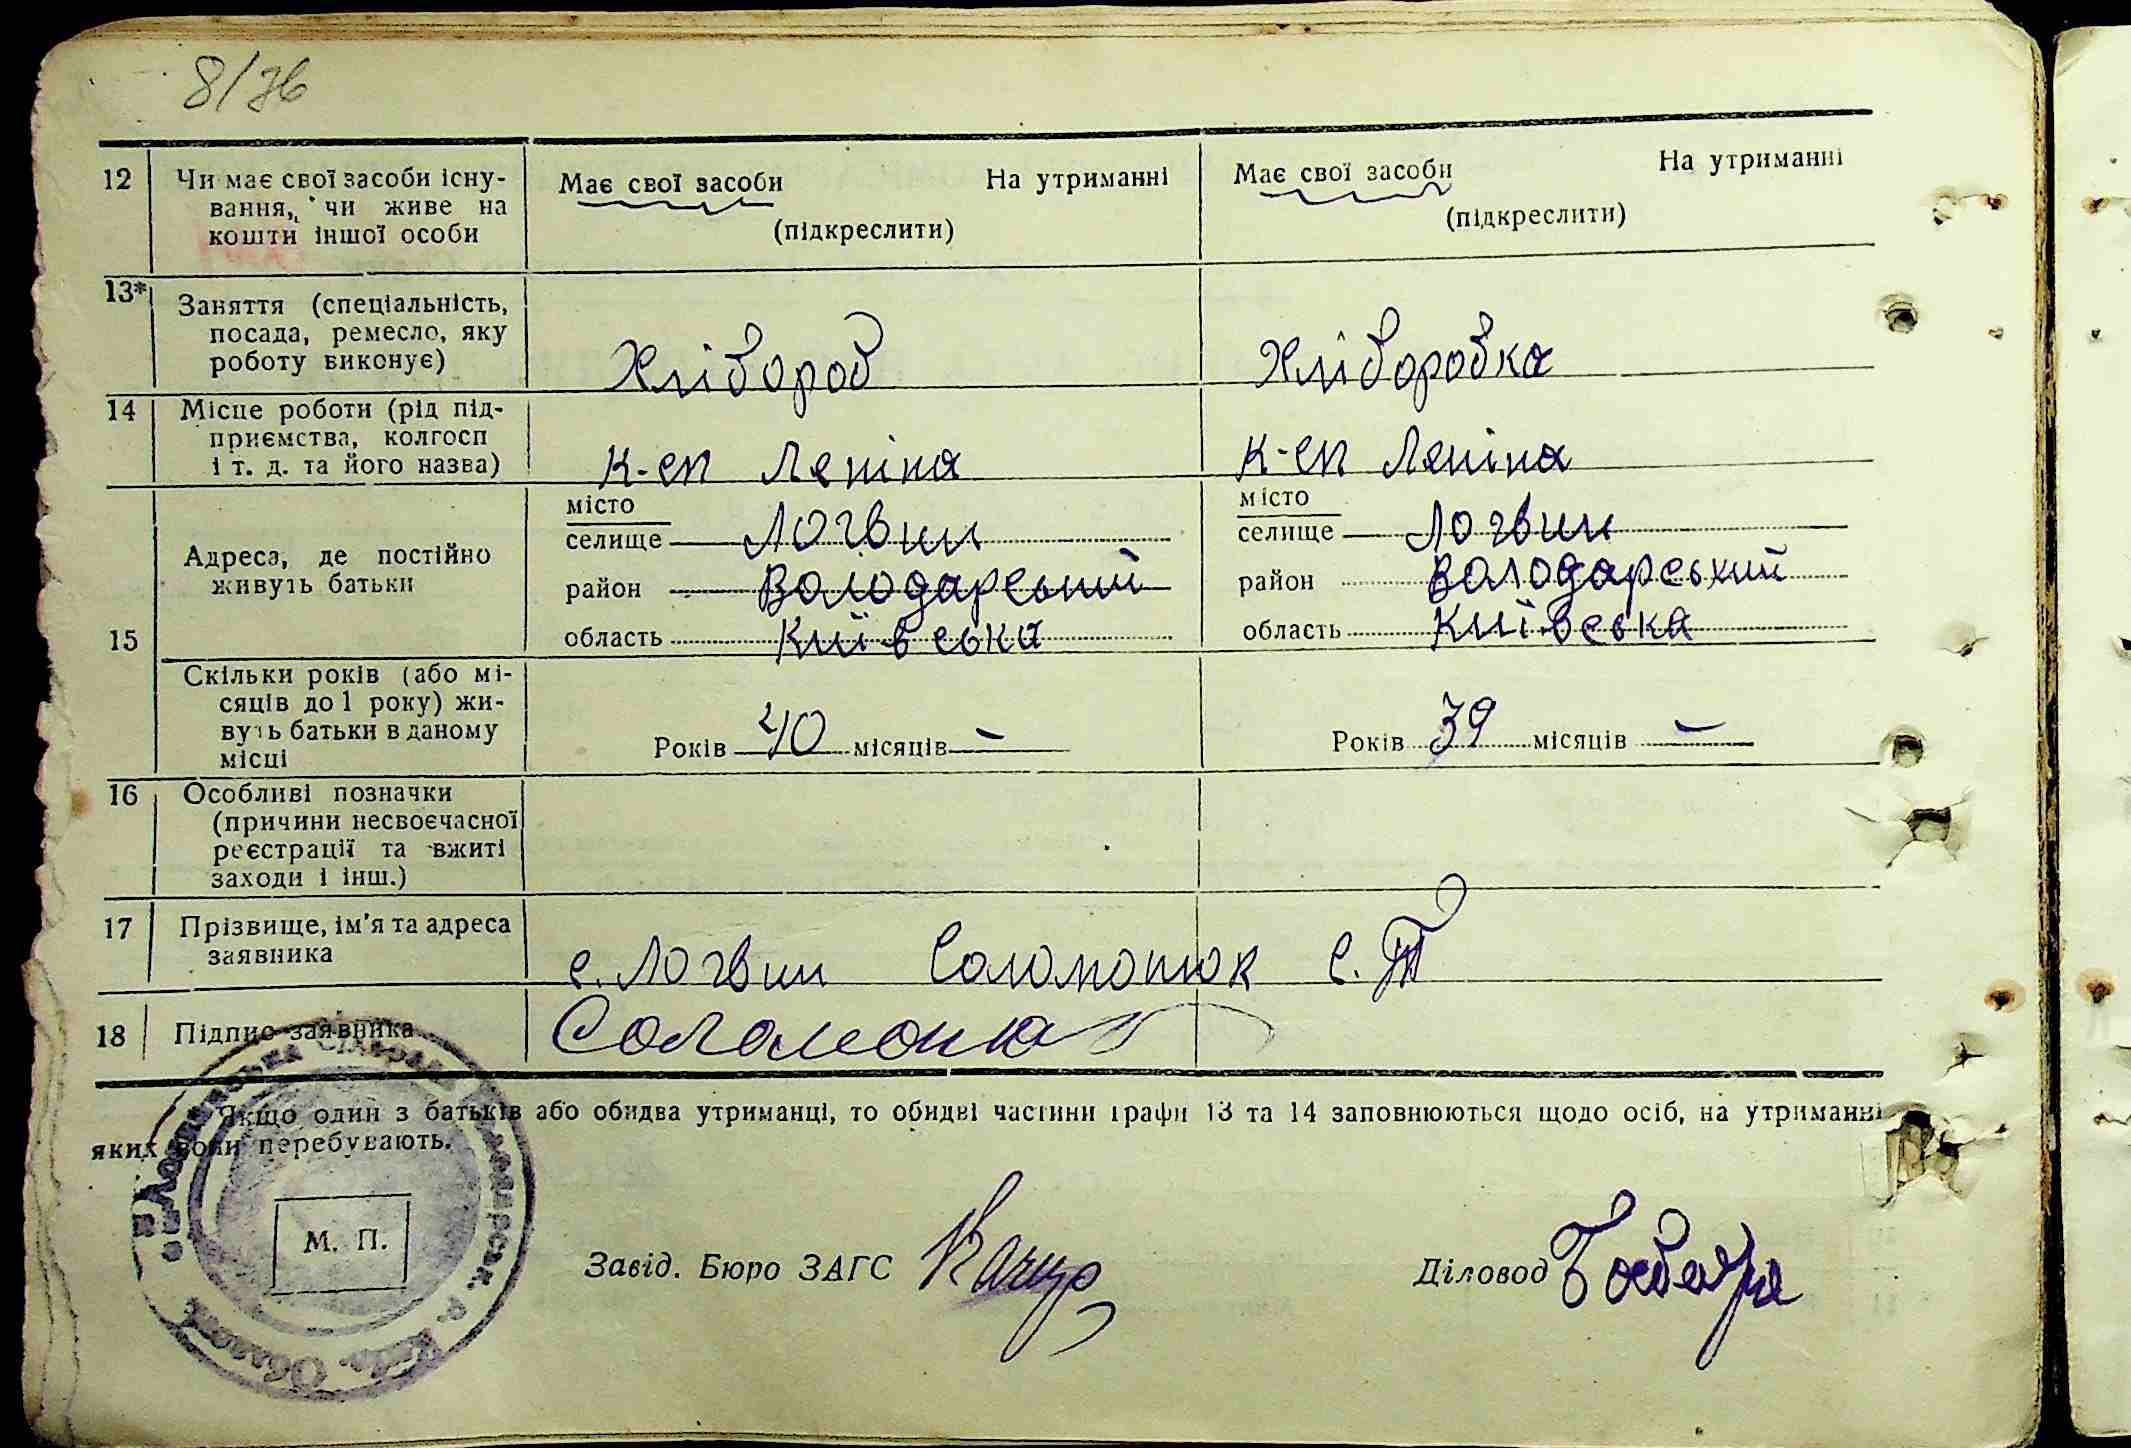 8/76
12 Чи має свої засоби існу-
вання, чи живе на
кошти іншої особи
Має свої засоби На утриманні
(підкреслити)
Має свої засоби На утриманні
(підкреслити)
13* Заняття (спеціальність,
посада, ремесло, яку
роботу виконує)
Хлібороб
Хліборобка
14 Місце роботи (рід під-
приємства, колгосп
і т. д. та його назва)
к-сп Леніна
к-сп Леніна
15 Адреса, де постійно
живуть батьки
місто
селище Логвин
район Володарський
область Київська
місто
селище Логвин
район Володарський
область Київська
Скільки років (або мі-
сяців до 1 року) жи-
вуть батьки в даному
місці
Років 40 місяців —
Років 39 місяців —
16 Особливі позначки
(причини несвоєчасної
реєстрації та вжиті
заходи і інш.)
17 Прізвище, ім'я та адреса
заявника
с. Логвин Соломонюк С. Т
18 Підпис заявника
Соломонюк
Якщо один з батьків або обидва утриманці, то обидві частини графи 13 та 14 заповнюються щодо осіб, на утриманні
яких вони перебувають.
М. П.
Завід. Бюро ЗАГС
Діловод